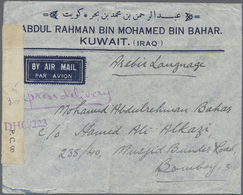 عبدالرحمن بن محمد بن بحر كويت
ABDUL RAHMAN BIN MOHAMED BIN BAHAR.
KUWAIT. (IRAQ)
BY AIR MAIL
PAR AVION
Arabic Language
Express delivery
DHC/223
Mohamed Abdulrehman Bahar
C/o Hamed Ali Alkazi
235/40, Musjid Bunder Road
Bombay 3